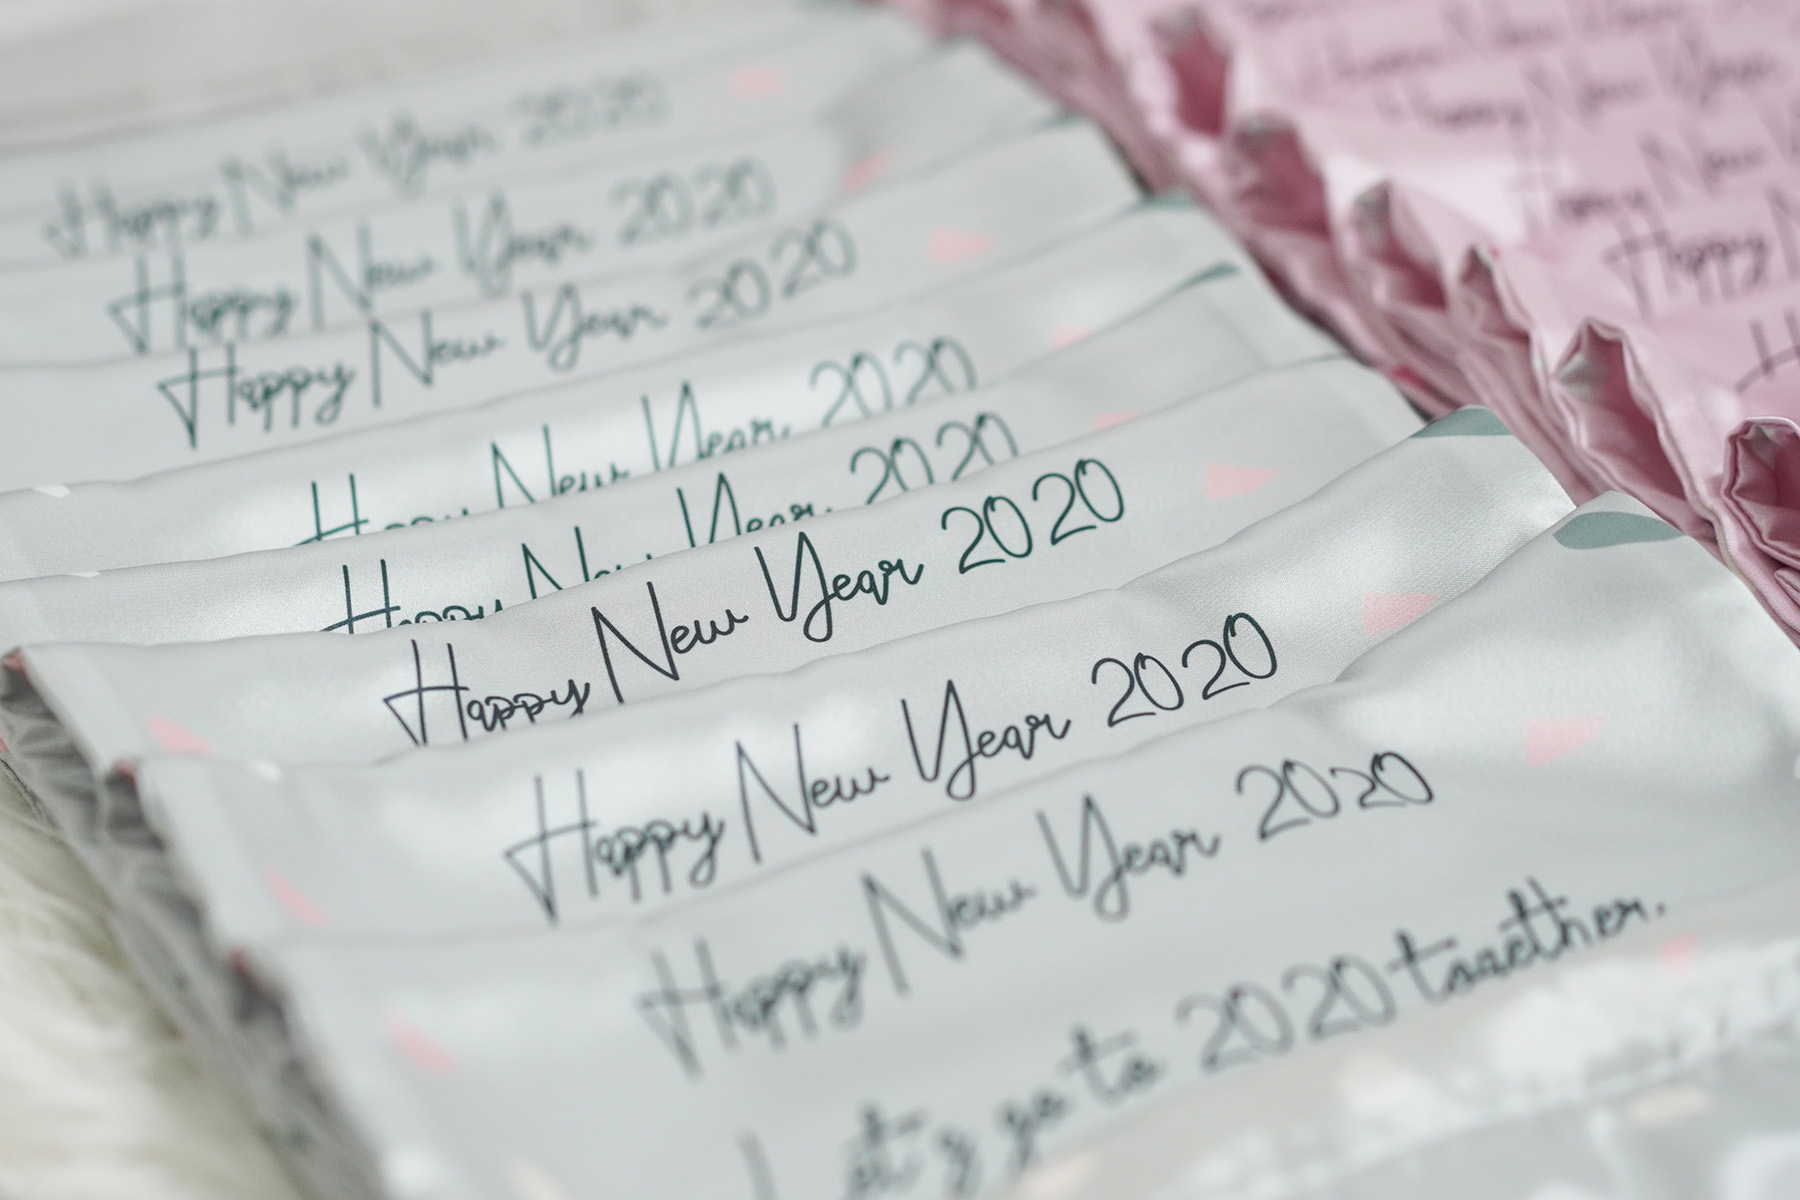 Happy New Year 2020
Happy New Year 2020
Happy New Year 2020
Happy New Year 2020
Happy New Year 2020
Happy New Year 2020
Happy New Year 2020
Happy New Year 2020
Let's go to 2020 together.
Happy New Year
Happy New Year
Happy New
Happy